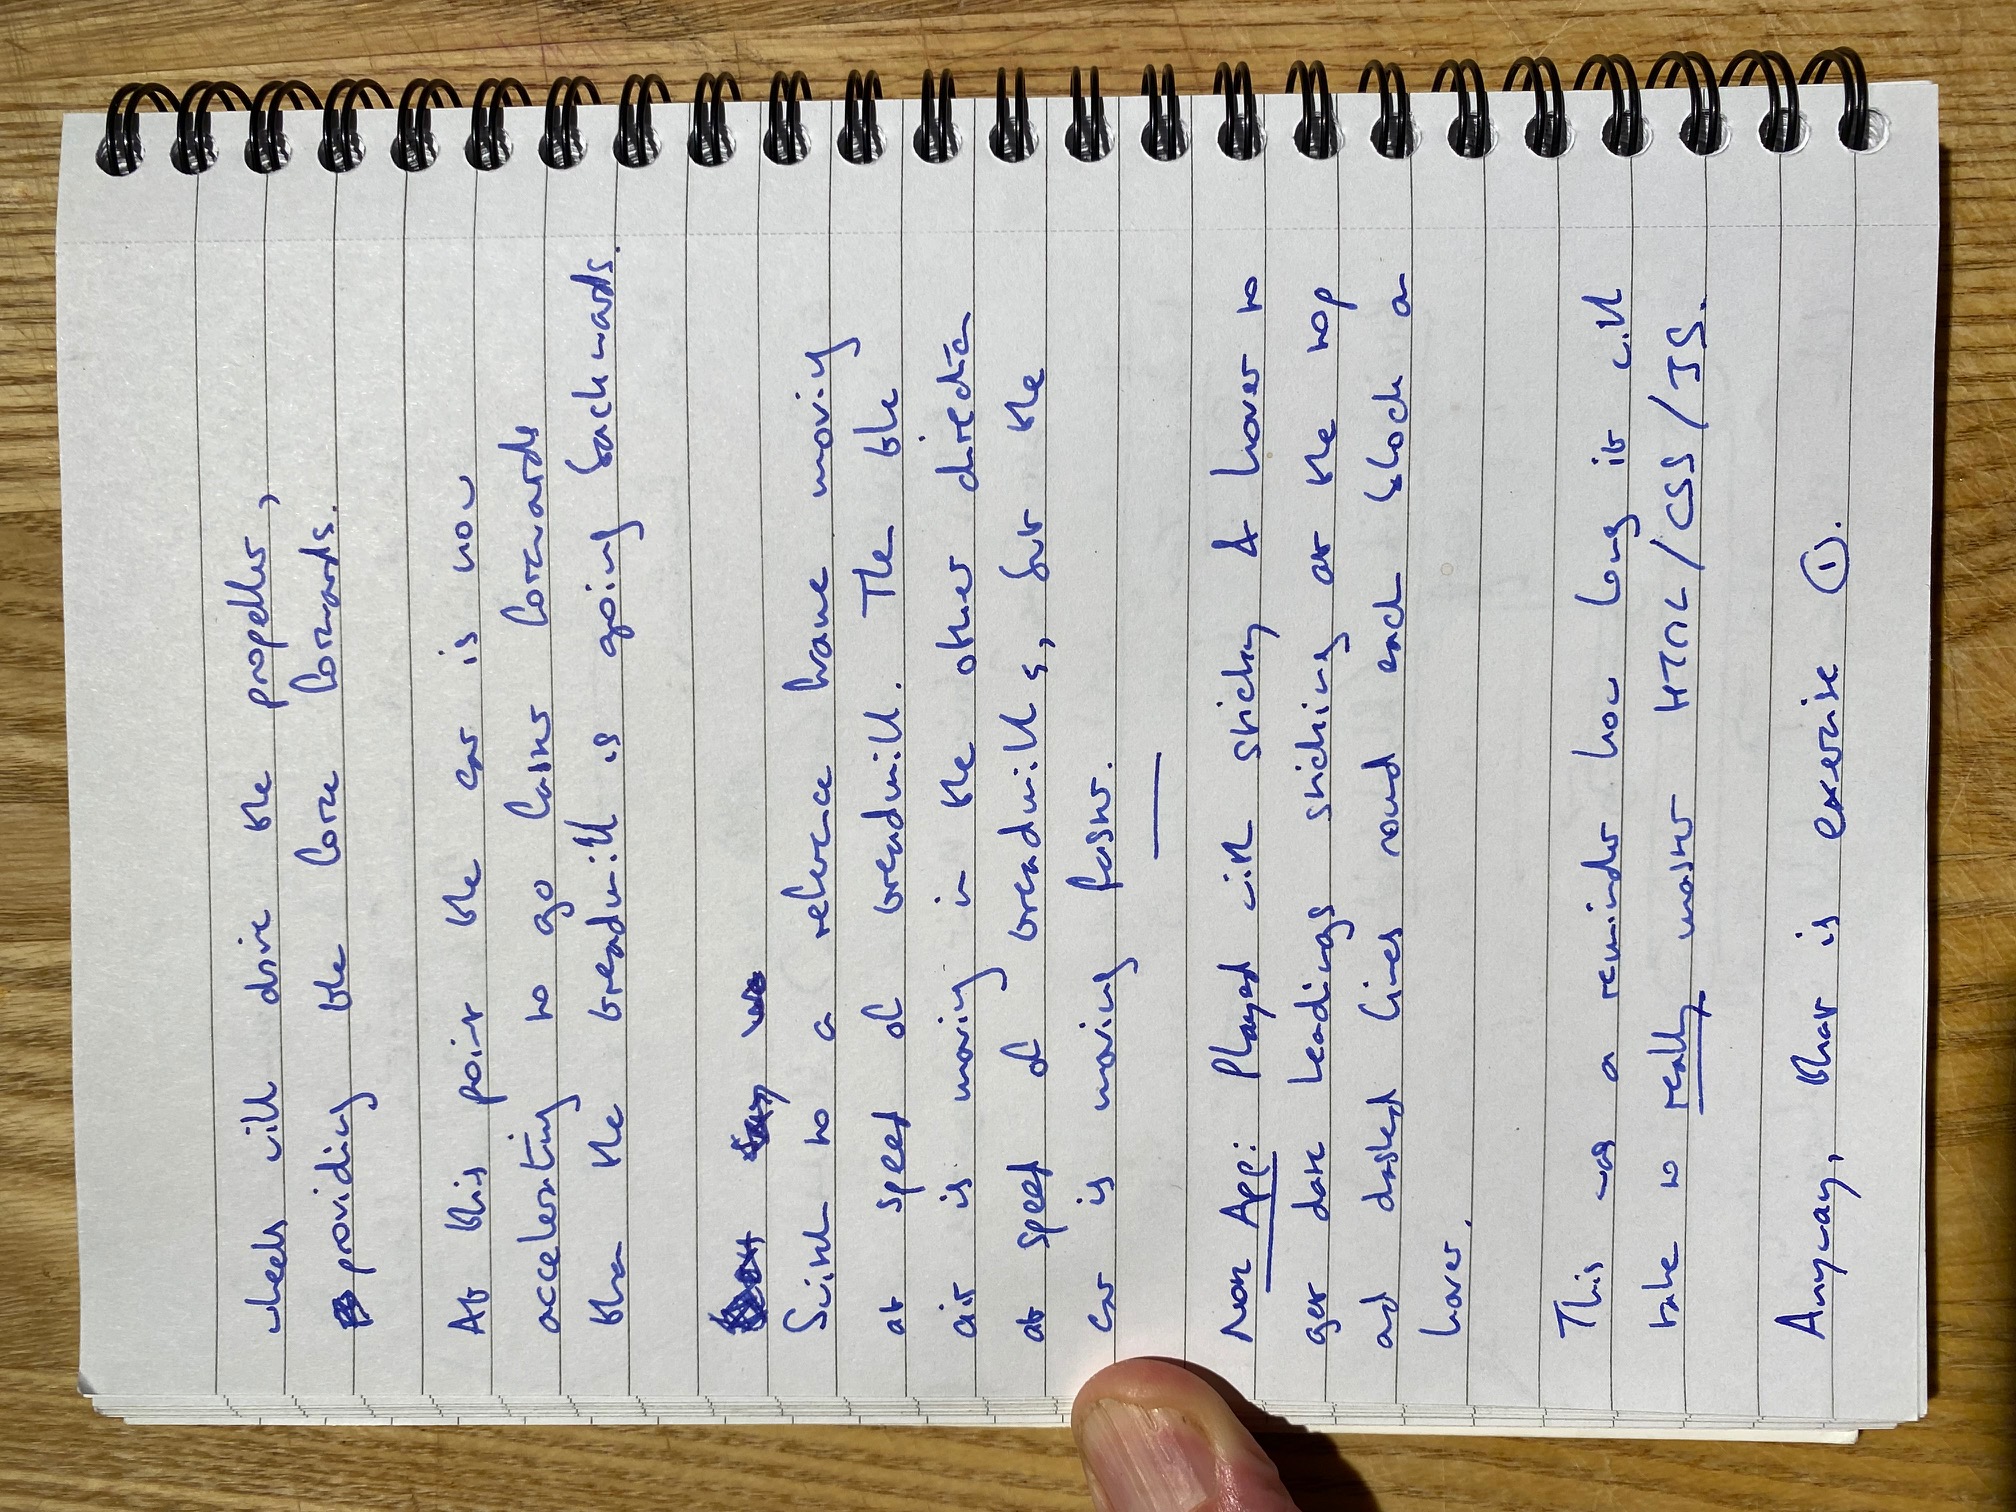 wheels will drive the propeller,
providing the force forwards.
At this point the car is now
accelerating to go faster forwards
than the treadmill is going backwards.
Switch to a reference frame moving
at speed of treadmill. Then the
air is moving in the other direction
at speed of treadmills, but the
car is moving faster.
Note App: Played with sticky & hover to
get date headings sticking at the top
and dashed lines round each block on
hover.
This was a reminder how long it will
take to really master HTML/CSS/JS.
Anyway, that is exercise ①.